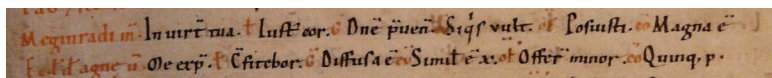 Meginradi m̅. In uirt̅ tua. ł Iust̅ eor. G̅ Dn̅e p̅uen̅. Siq̅s vult. of Posuisti. co Magna e̅
agne Me exp̅. G̅ Diffusa e̅ Simil̅ e̅ x. of Offer̅ minor. co Quinq; p.